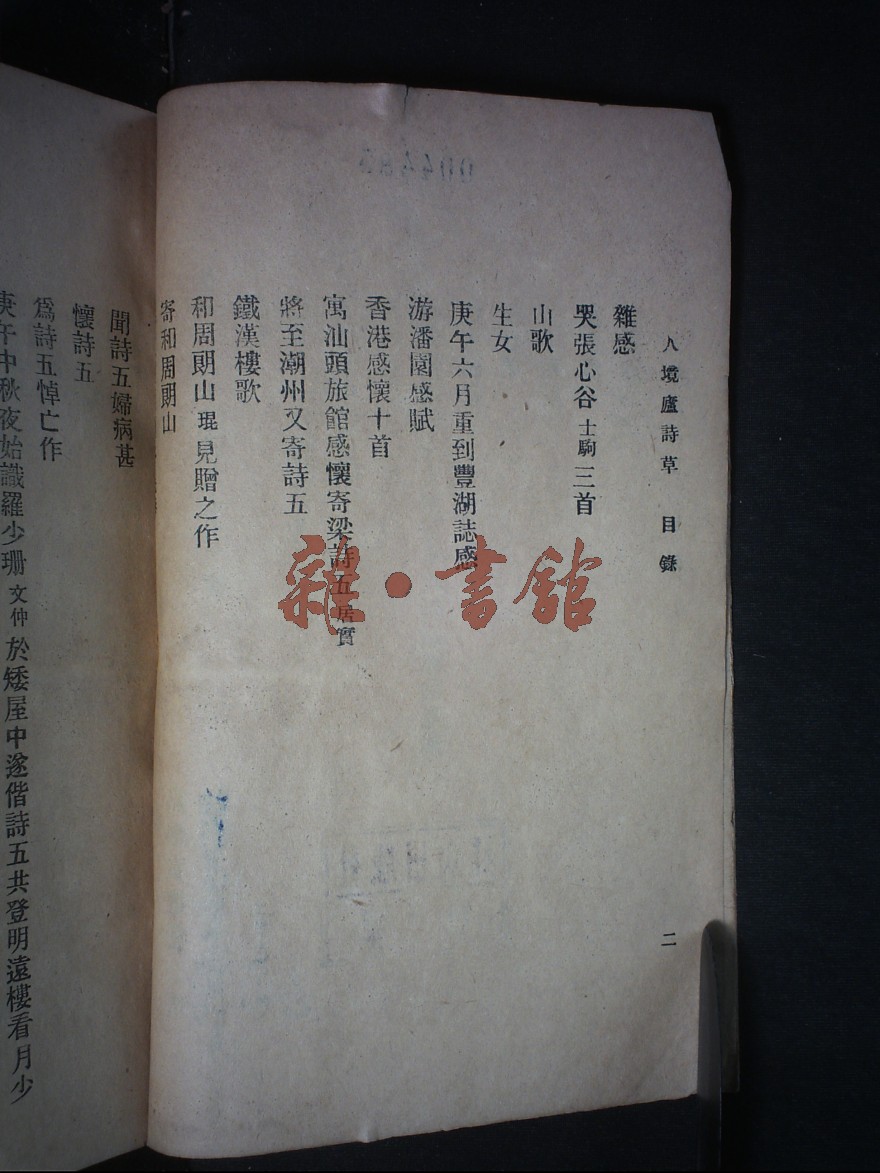 人境廬詩草 目錄
二
雜感
哭張心谷 士駒 三首
山歌
生女
庚午六月重到豐湖誌感
游潘園感賦
香港感懷十首
寓汕頭旅館感懷寄梁詩五 居實
將至潮州又寄詩五
鐵漢樓歌
和周朗山 琨 見贈之作
寄和周朗山
聞詩五婦病甚
懷詩五
為詩五悼亡作
庚午中秋夜始識羅少珊 文仲 於矮屋中遂偕詩五共登明遠樓看月少
雜·書館